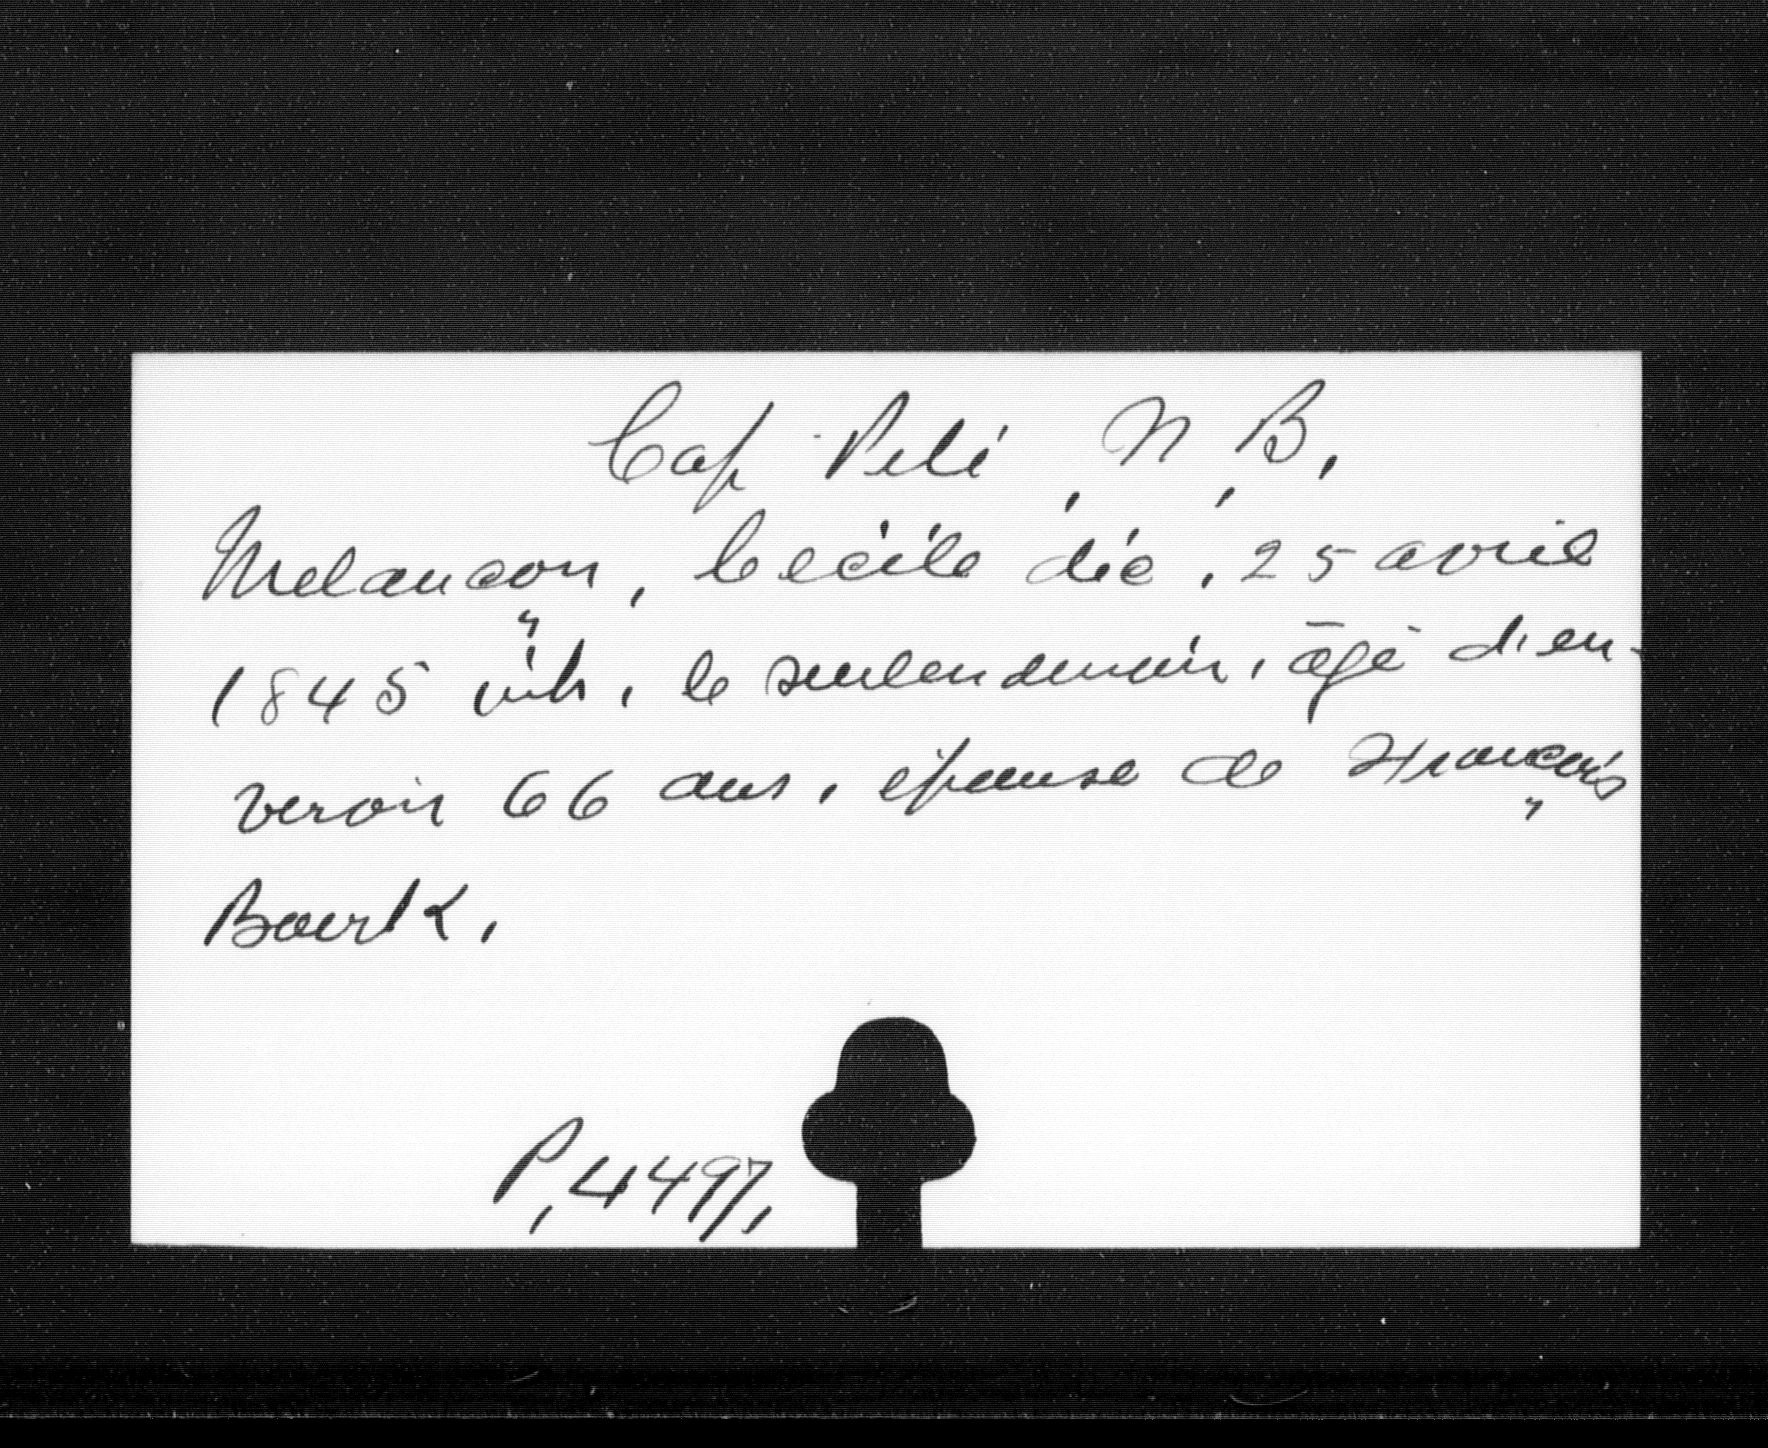 Cap Pelé, N, B,
Melançon, Cécile déc, 25 avril
1845 inh, le surlendemain, âgé d'en-
viron 66 ans, épouse de François
Bourk,
P, 4497,